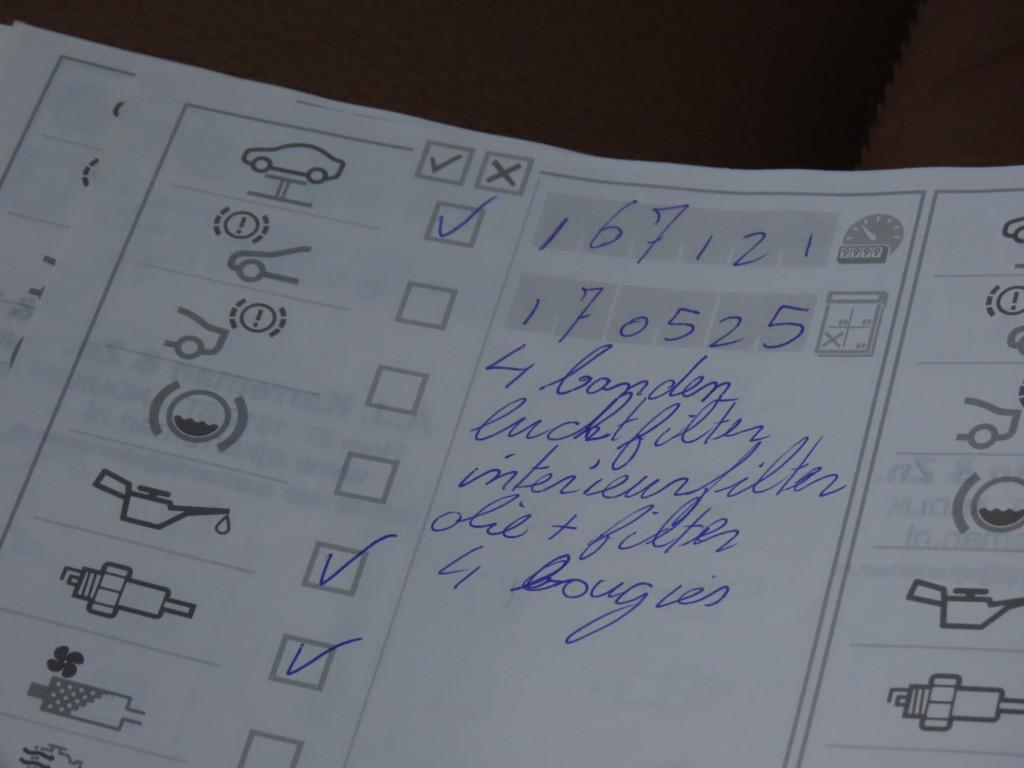 167121
170525
4 banden
luchtfilter
interieurfilter
olie + filter
4 bougies